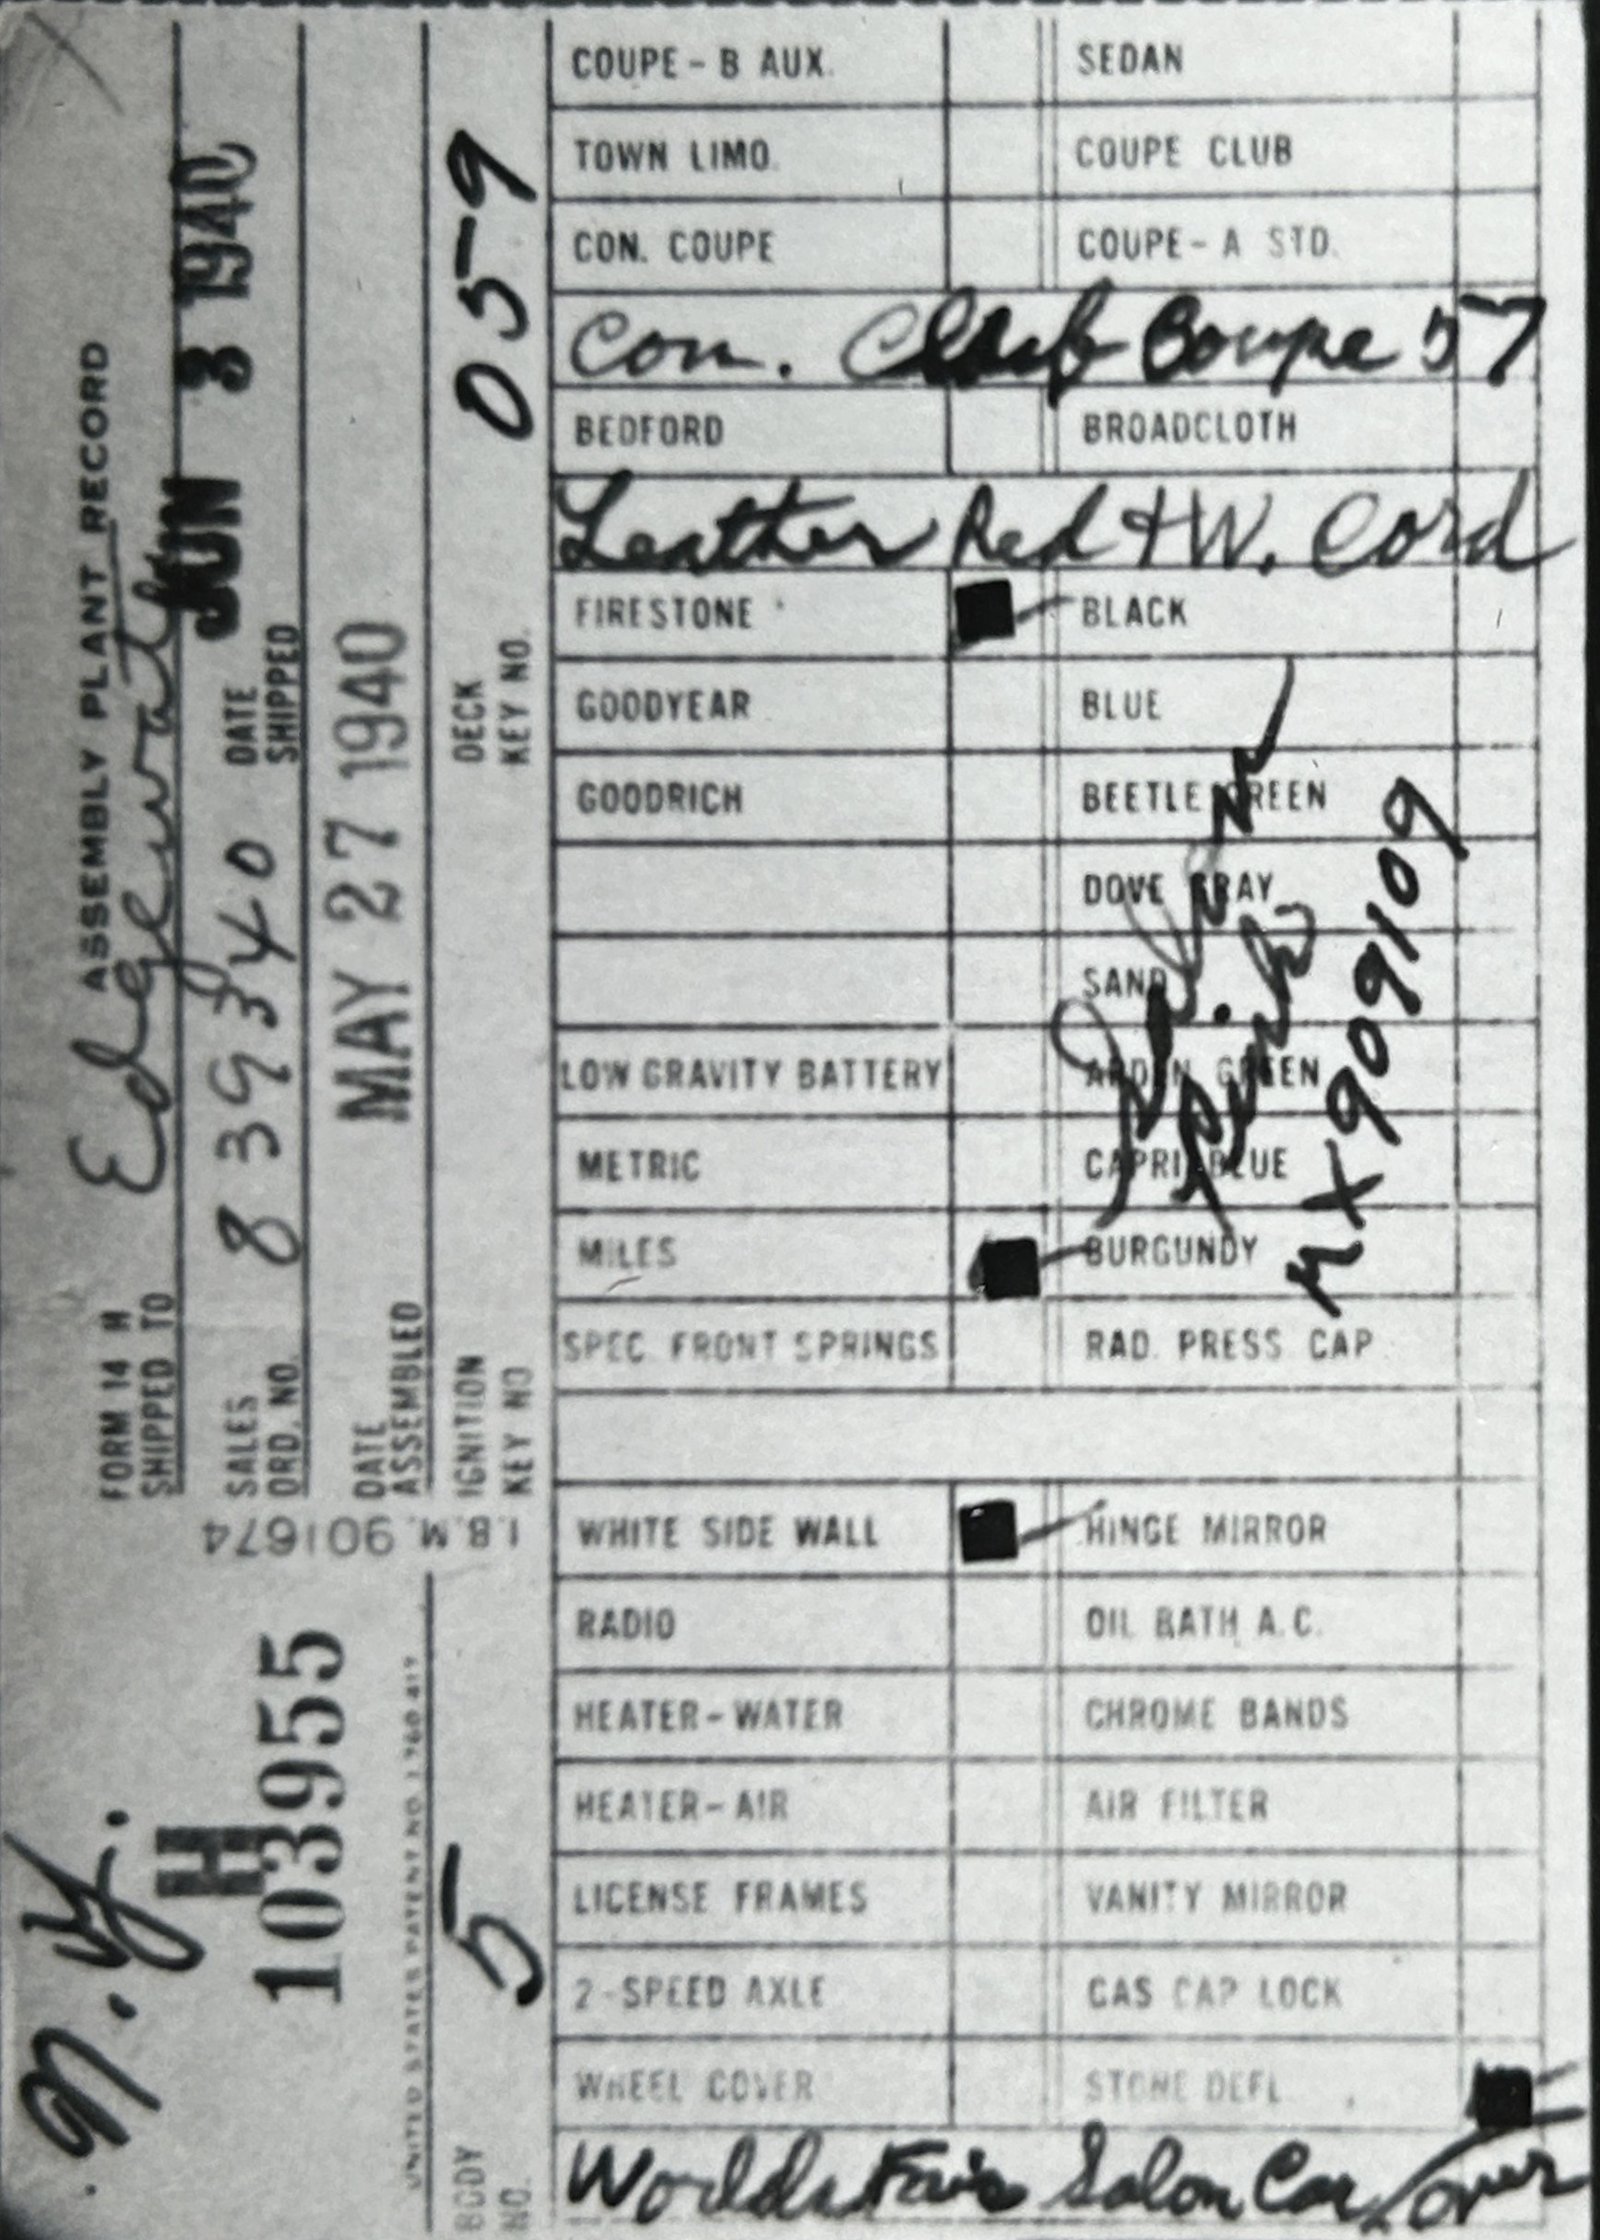 FORM 14 H ASSEMBLY PLANT RECORD
SHIPPED TO Edgewater
SALES ORD. NO. 839340
DATE SHIPPED JUN 3 1940
DATE ASSEMBLED MAY 27 1940
IGNITION KEY NO
DECK KEY NO. 059
I.B.M. 901674
N.Y.
H
103955
UNITED STATES PATENT NO. 1,760,417
BODY NO. 5
COUPE - B AUX. SEDAN
TOWN LIMO. COUPE CLUB
CON. COUPE COUPE - A STD.
Con. Club Coupe 57
BEDFORD BROADCLOTH
Leather Red + W. Cord
FIRESTONE BLACK
GOODYEAR BLUE
GOODRICH BEETLE GREEN
DOVE GRAY
SAND
LOW GRAVITY BATTERY ARDEN GREEN
METRIC CAPRI BLUE
MILES BURGUNDY
Salon
Pink
MX909109
SPEC. FRONT SPRINGS RAD. PRESS. CAP
WHITE SIDE WALL HINGE MIRROR
RADIO OIL BATH A.C.
HEATER - WATER CHROME BANDS
HEATER - AIR AIR FILTER
LICENSE FRAMES VANITY MIRROR
2 - SPEED AXLE GAS CAP LOCK
WHEEL COVER STONE DEFL.
Worlds Fair Salon Car/over